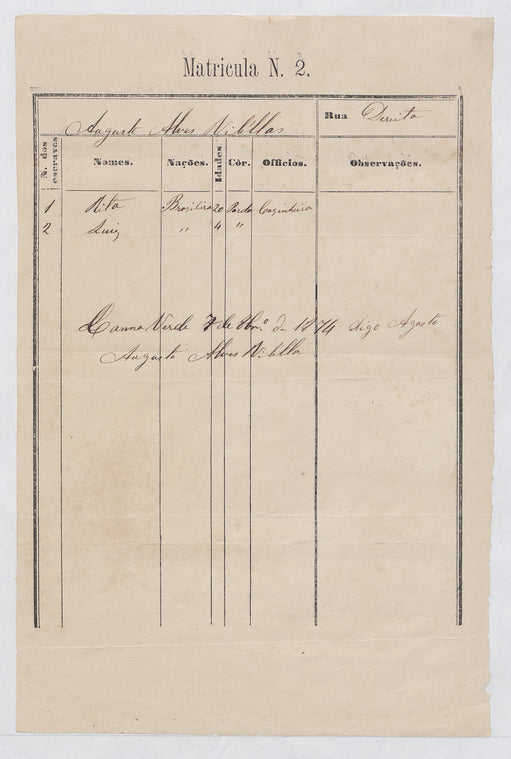 Matricula N. 2.
Augusto Alves Vilella
Rua Direita
N. dos escravos
Nomes.
Nações.
Idades
Côr.
Officios.
Observações.
1 Rita Brasileira 20 Parda Cozinheira
2 Luiz " 4 "
Canna Verde 7 de 8br.º de 1874 digo Agosto
Augusto Alves Vilella